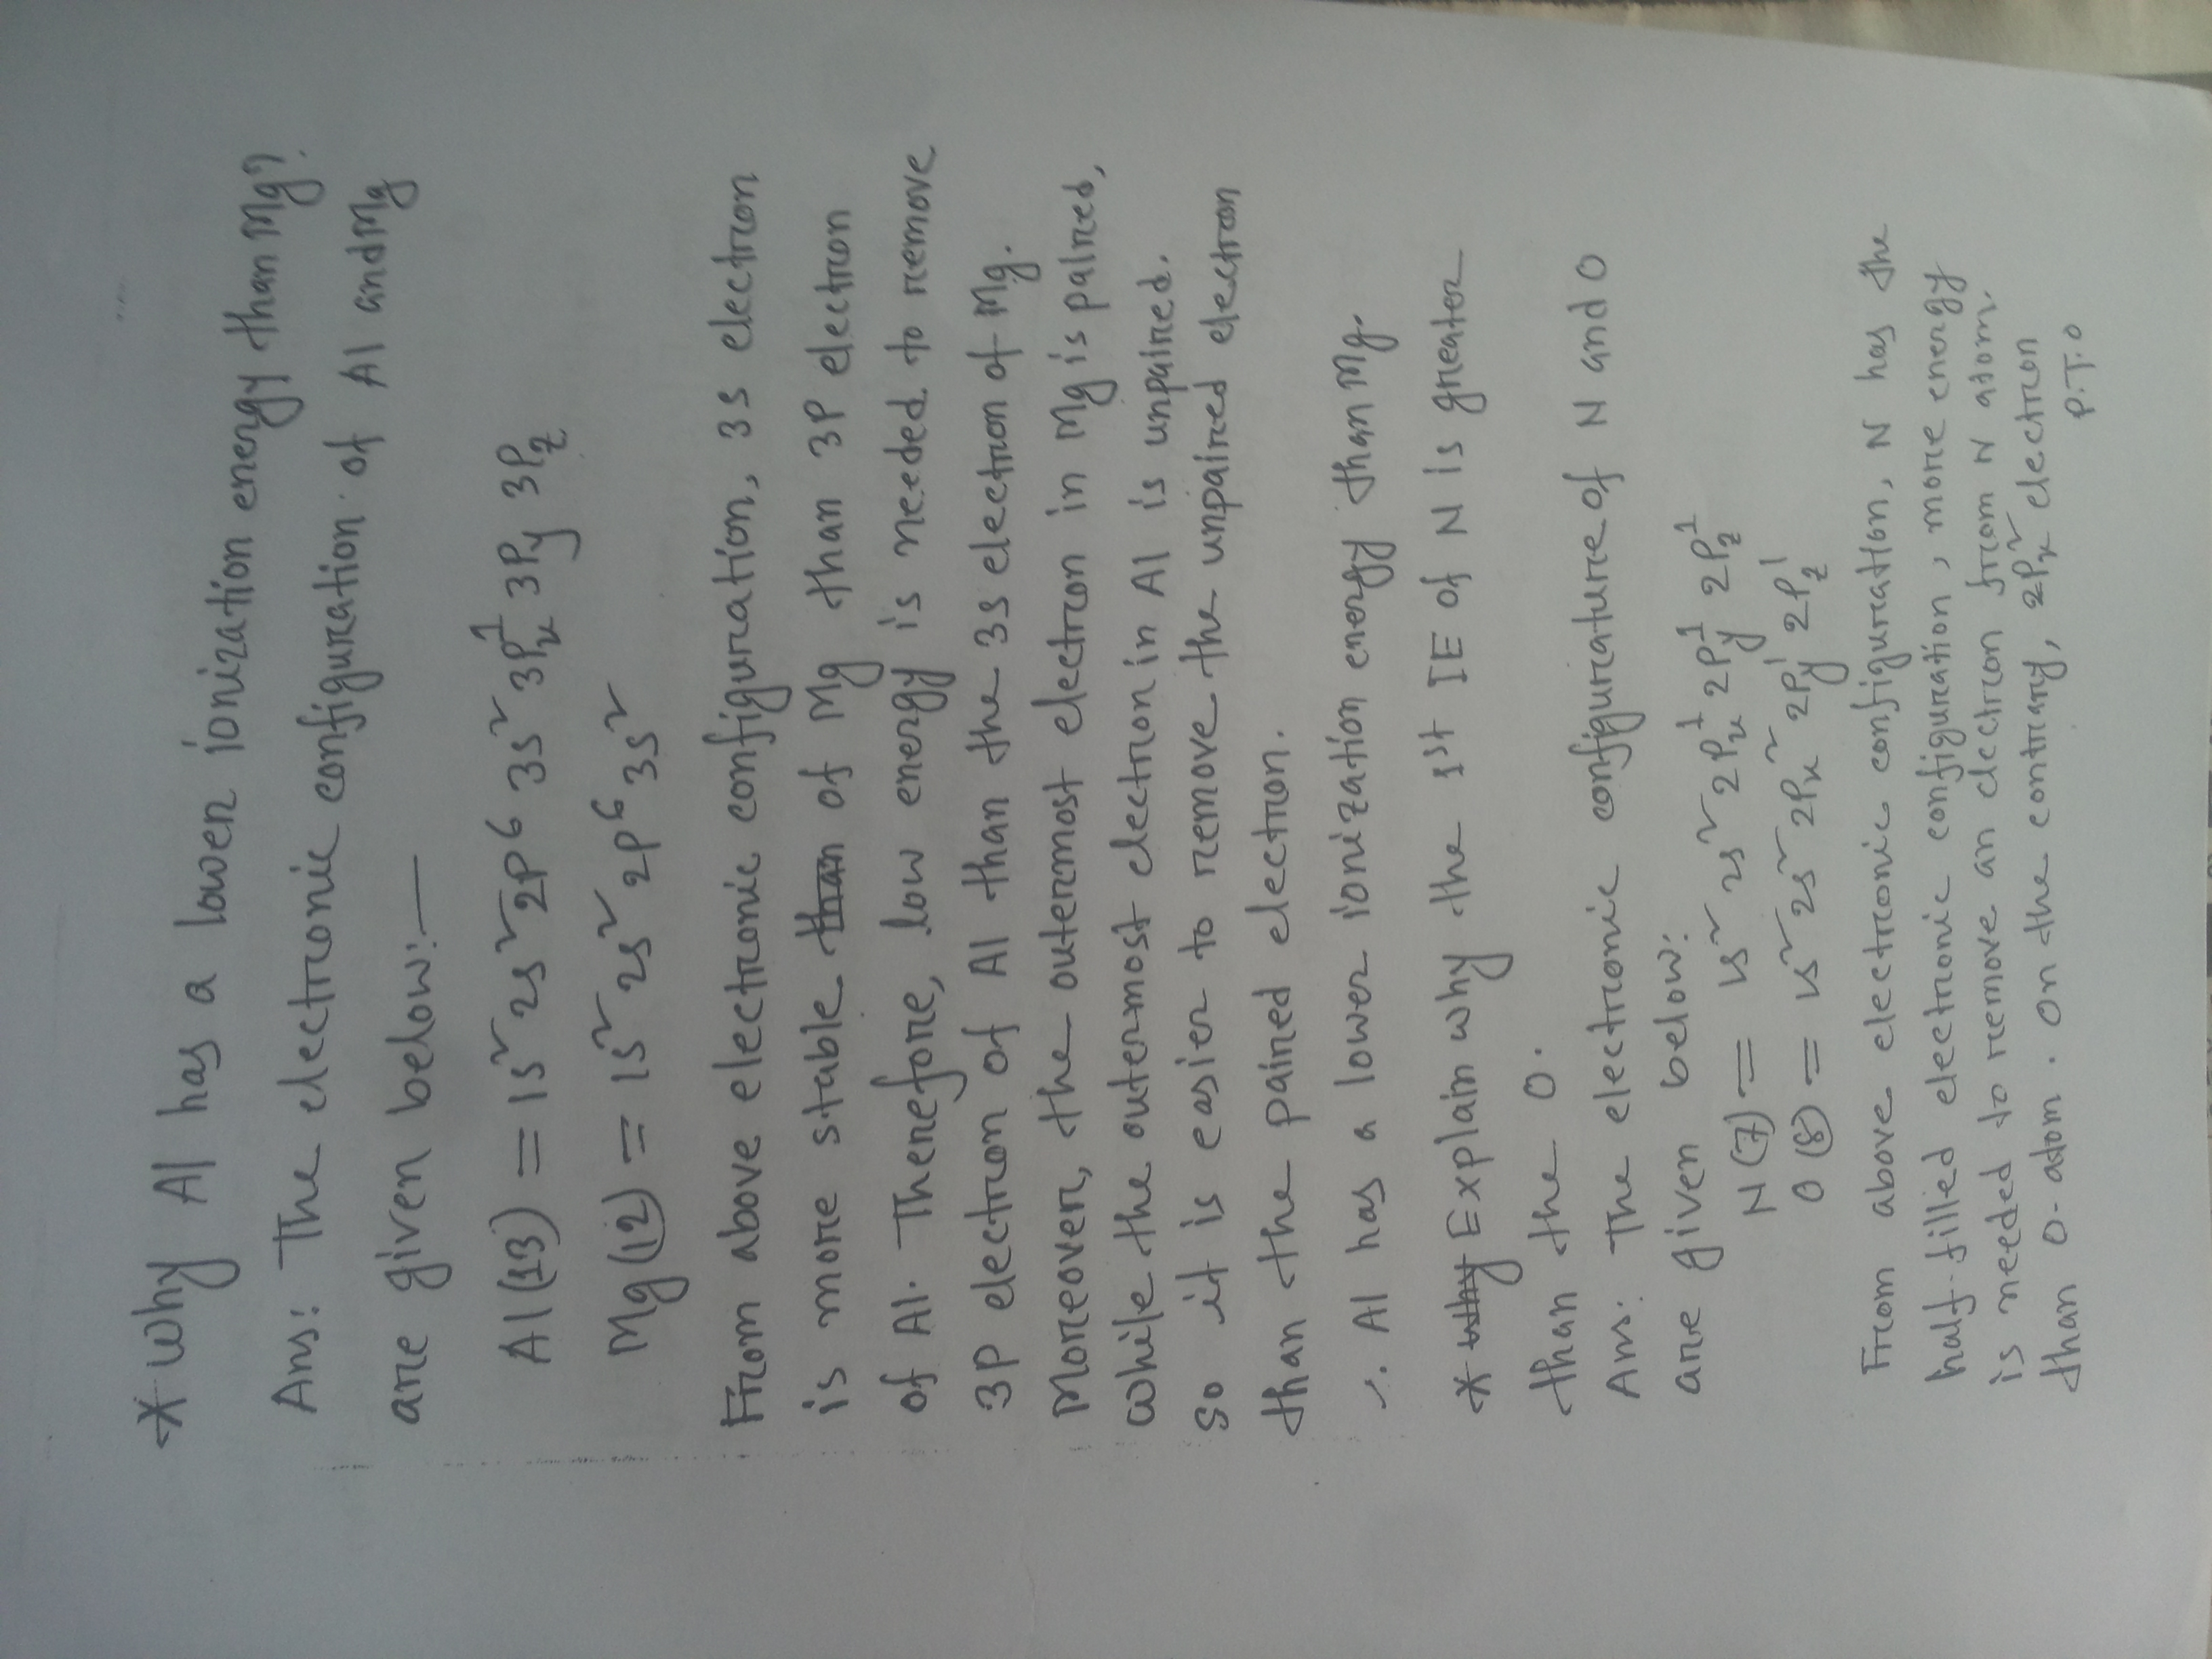 * Why Al has a lower ionization energy than Mg?
Ans: The electronic configuration of Al and Mg
are given below:—
Al(13) = 1s² 2s² 2p⁶ 3s² 3Px¹ 3Py 3Pz
Mg(12) = 1s² 2s² 2p⁶ 3s²
From above electronic configuration, 3s electron
is more stable than of Mg than 3P electron
of Al. Therefore, low energy is needed to remove
3P electron of Al than the 3s electron of Mg.
Moreover, the outermost electron in Mg is paired,
while the outermost electron in Al is unpaired.
So it is easier to remove the unpaired electron
than the paired electron.
∴ Al has a lower ionization energy than Mg.
* why Explain why the 1st IE of N is greater
than the O.
Ans: The electronic configurature of N and O
are given below:
N(7) = 1s² 2s² 2Px¹ 2Py¹ 2Pz¹
O(8) = 1s² 2s² 2Px² 2Py¹ 2Pz¹
From above electronic configuration, N has the
half-filled electronic configuration, more energy
is needed to remove an electron from N atom.
than O-atom. On the contrary, 2Px² electron
P.T.O